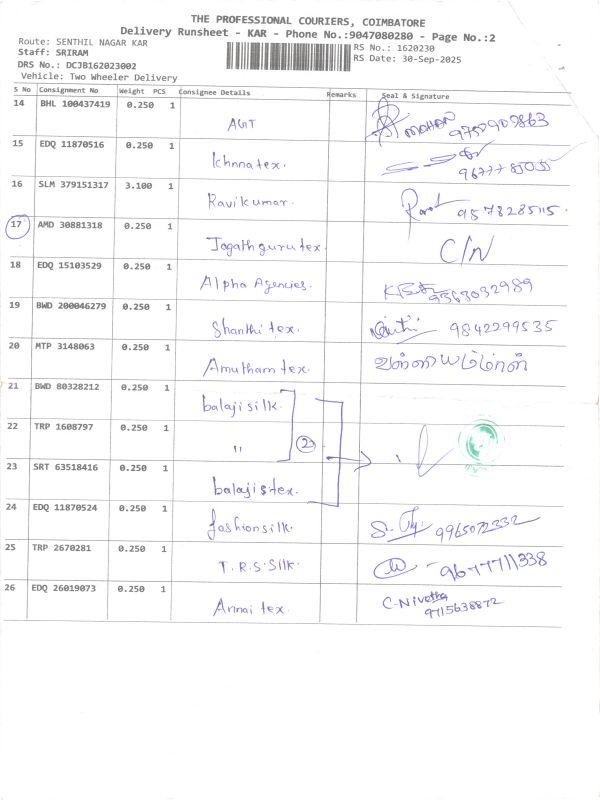 THE PROFESSIONAL COURIERS, COIMBATORE
Delivery Runsheet - KAR - Phone No.:9047080280 - Page No.:2
Route: SENTHIL NAGAR KAR
Staff: SRIRAM
DRS No.: DCJB162023002
Vehicle: Two Wheeler Delivery
RS No.: 1620230
RS Date: 30-Sep-2025
S No Consignment No Weight PCS Consignee Details Remarks Seal & Signature
14 BHL 100437419 0.250 1 AGT MOHAN
15 EDQ 11870516 0.250 1 Ichnnatex.
16 SLM 379151317 3.100 1 Ravikumar. 9578285115.
17 AMD 30881318 0.250 1 Jagathgurutex. C/N
18 EDQ 15103529 0.250 1 Alpha Agencies. 9363032989
19 BWD 200046279 0.250 1 Shanthi tex. 9842299535
20 MTP 3148063 0.250 1 Amutham tex.
21 BWD 80328212 0.250 1 balaji silk.
22 TRP 1608797 0.250 1 " 2
23 SRT 63518416 0.250 1 balajistex.
24 EDQ 11870524 0.250 1 fashionsilk. 9965072332
25 TRP 2670281 0.250 1 T.R.S. Silk. 9677711338
26 EDQ 26019073 0.250 1 Annai tex. C-Nivetha
9715638872